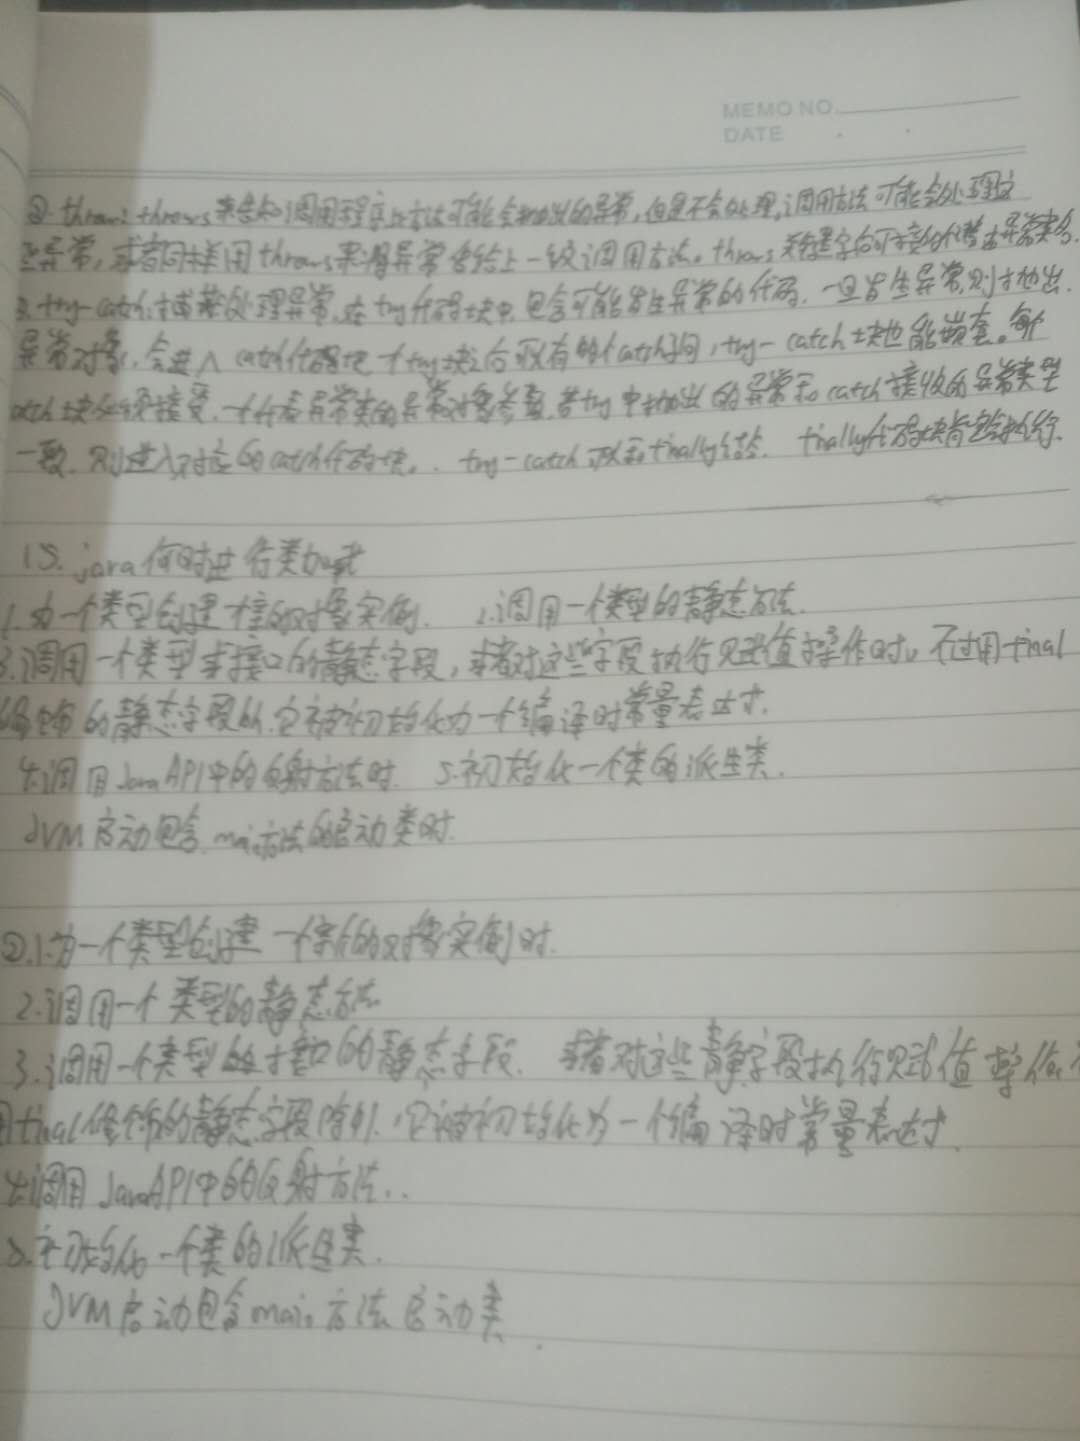 MEMO NO.
DATE
②. throws: throws来告知调用程序此方法可能会抛出的异常,但是不会处理,调用方法可能会处理这
些异常,或者同样用throws来将异常舍给上一级调用方法。throws关键字后可接的代替去异常类
3. try-catch:捕获处理异常,在try代码块中,包含可能发生异常的代码,一旦发生异常,则才抛出
异常对象,会进入catch代码块 个try块之后可以有多个catch子句,try-catch块也能嵌套。每个
catch块必须接受一个什么异常类的异常对象参数,若try中抛出的异常和catch接收的异常类型
一致,则进入对应的catch代码块。. try-catch可以和finally结合. finally代码块肯定会执行.
15. java何时进行类加载
1.为一个类型创建一个新的对象实例. 2.调用一个类型的静态方法.
3.调用一个类型或接口的静态字段,或者对这些字段执行赋值操作时。不过用final
修饰的静态字段除外,它被初始化为一个编译时常量表达式.
4.调用Java API中的反射方法时. 5.初始化一个类的派生类.
JVM启动包含main方法的启动类时.
②.1.为一个类型创建一个新的对象实例时.
2.调用一个类型的静态方法
3.调用一个类型或接口的静态字段. 或者对这些静字段执行赋值操作.
用final修饰的静态字段除外.它被初始化为一个编译时常量表达式.
4.调用JavaAPI中的反射方法..
5.初始化一个类的派生类.
JVM启动包含main方法启动类.